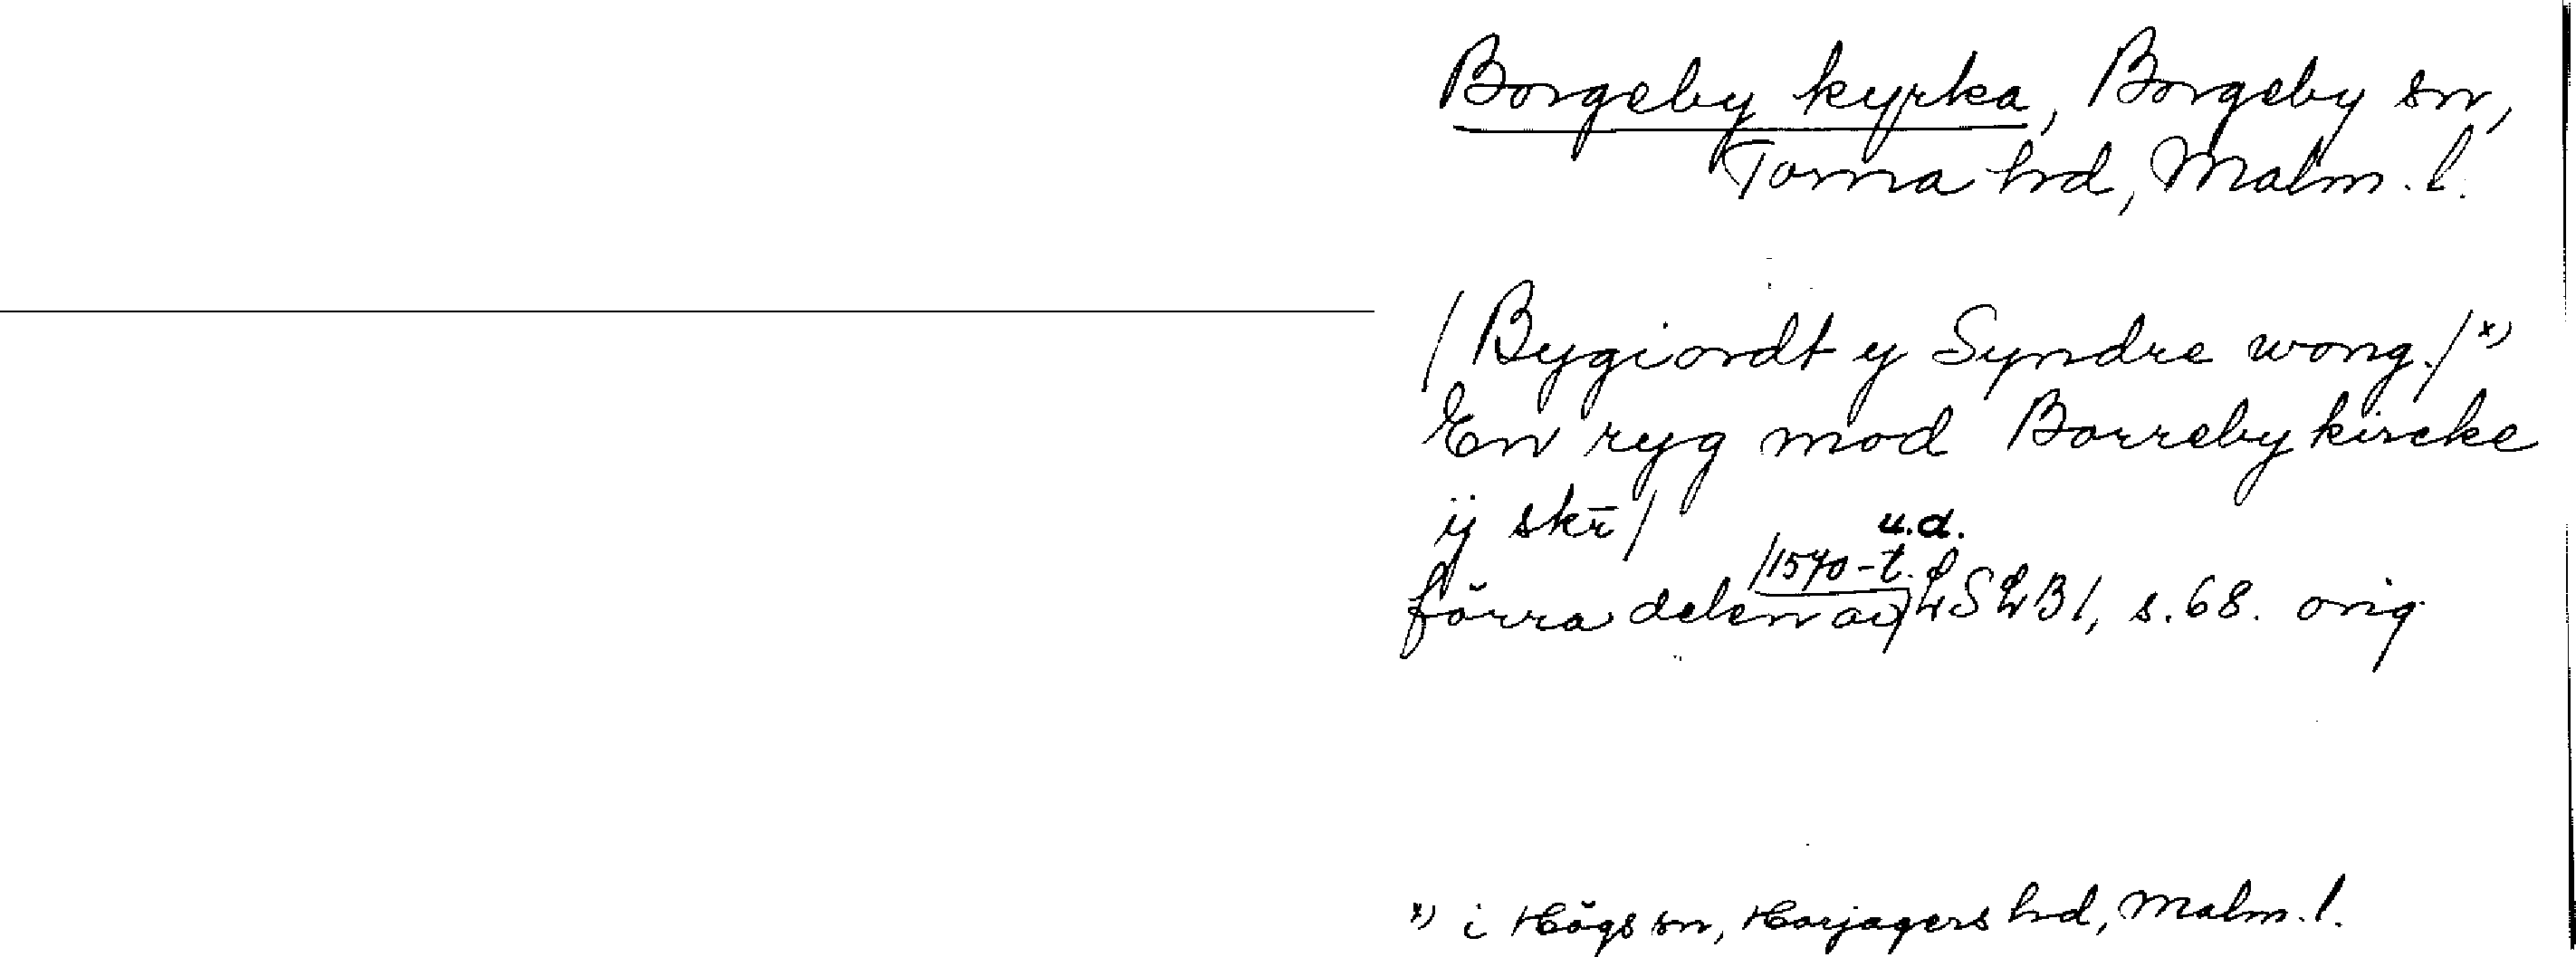 Borgeby kyrka, Borgeby sn,
Torna hd, Malm. l.
/Bygiordt y Syndre wong./ x)
En ryg mod Borreby kircke
ij skr̄/
u.d.
/1570-t.
förra delen av/ LSLB 1, s. 68. orig
x) i Högs sn, Harjagers hd, Malm. l.